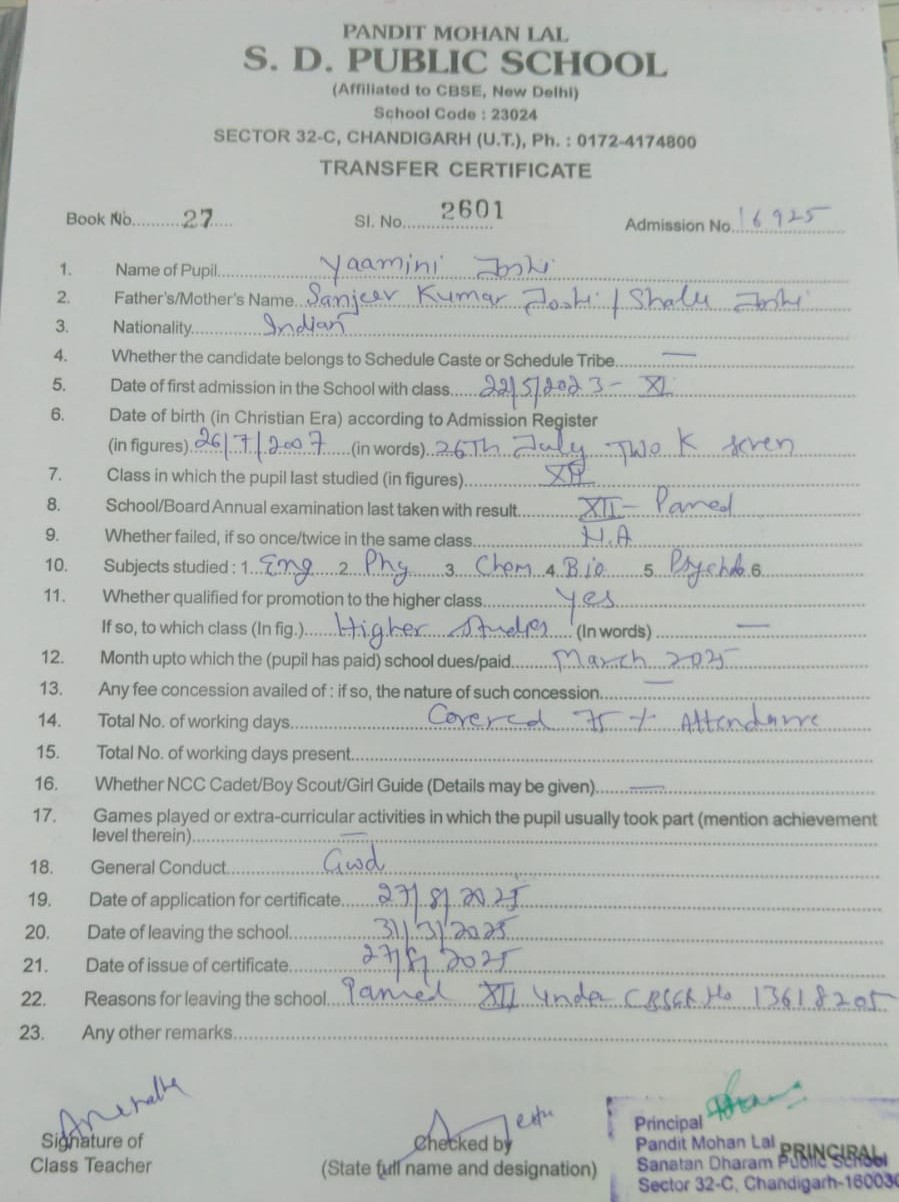 PANDIT MOHAN LAL
S. D. PUBLIC SCHOOL
(Affiliated to CBSE, New Delhi)
School Code : 23024
SECTOR 32-C, CHANDIGARH (U.T.), Ph. : 0172-4174800
TRANSFER CERTIFICATE
Book No. 27 Sl. No. 2601 Admission No. 16925
1. Name of Pupil Yaamini Joshi
2. Father's/Mother's Name Sanjeev Kumar Joshi / Shalu Joshi
3. Nationality Indian
4. Whether the candidate belongs to Schedule Caste or Schedule Tribe —
5. Date of first admission in the School with class 22/5/2023 - XI
6. Date of birth (in Christian Era) according to Admission Register
(in figures) 26/7/2007 (in words) 26Th July Two K seven
7. Class in which the pupil last studied (in figures) XII
8. School/Board Annual examination last taken with result XII - Passed
9. Whether failed, if so once/twice in the same class N.A
10. Subjects studied : 1. Eng 2. Phy 3. Chem 4. Bio 5. 6.
11. Whether qualified for promotion to the higher class yes
If so, to which class (In fig.) Higher Studies (In words) —
12. Month upto which the (pupil has paid) school dues/paid March 2025
13. Any fee concession availed of : if so, the nature of such concession —
14. Total No. of working days Covered 75 % Attendance
15. Total No. of working days present
16. Whether NCC Cadet/Boy Scout/Girl Guide (Details may be given) —
17. Games played or extra-curricular activities in which the pupil usually took part (mention achievement
level therein) —
18. General Conduct Good
19. Date of application for certificate 27/8/2025
20. Date of leaving the school 31/3/2025
21. Date of issue of certificate 27/8/2025
22. Reasons for leaving the school Passed XII under CBSE R No 13618205
23. Any other remarks
Signature of
Class Teacher
Checked by
(State full name and designation)
Principal
Pandit Mohan Lal PRINCIPAL
Sanatan Dharam Public School
Sector 32-C, Chandigarh-160030